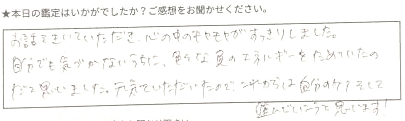 ★本日の鑑定はいかがでしたか？ご感想をお聞かせください。
お話をきいていただき、心の中のモヤモヤがすっきりしました。
自分でも気づかないうちに、色々な負のエネルギーをためていたの
だと思いました。浄化していただいたので、これからは自分のケアそして
進んでいこうと思います！